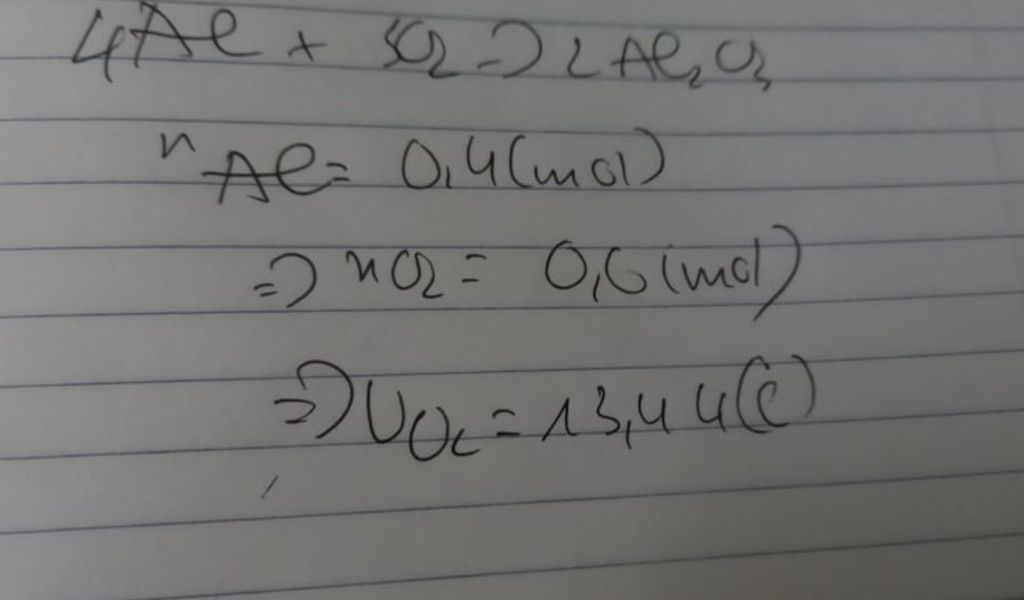 4Al + 3O₂ -> 2Al₂O₃
nAl = 0,4(mol)
=> nO₂ = 0,6(mol)
=> VO₂ = 13,44(l)